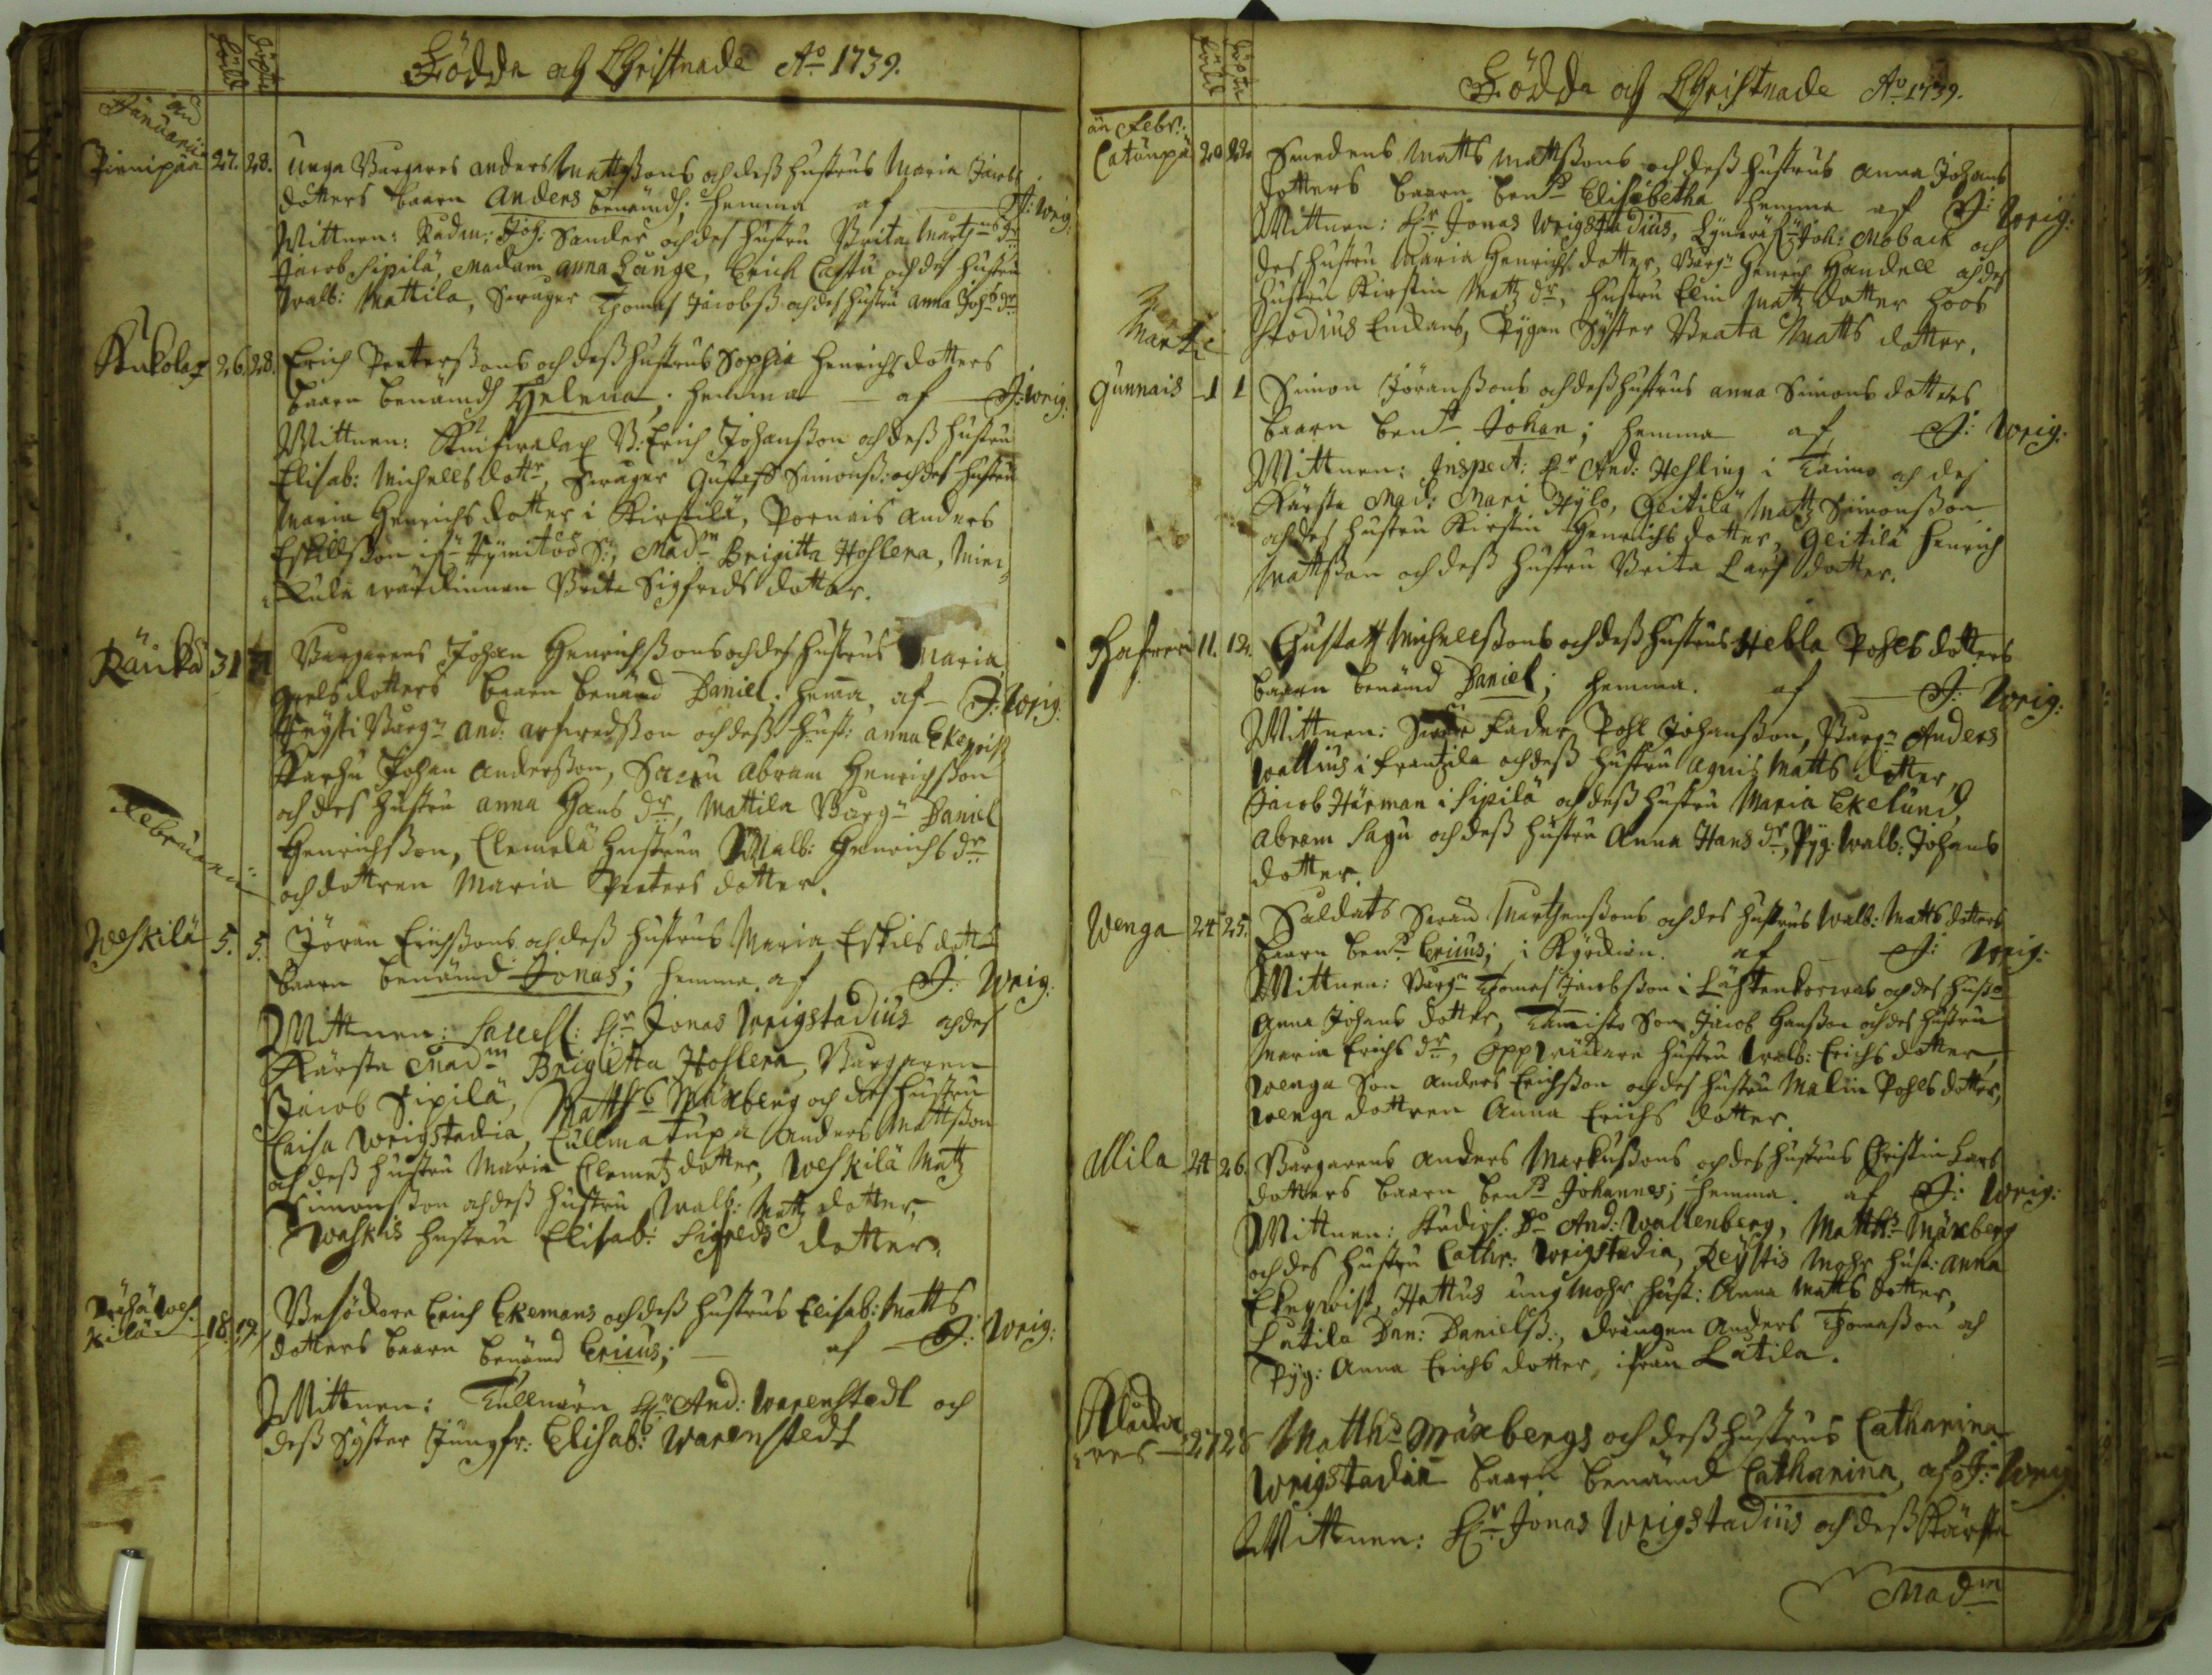 Födda och Christnade Aō 1739.
född
döpt
Januarii
27. 28. unga Borgares anders Mattssons och deß hustrus Maria Jacobs
dotters baarn Anders benämd; hemma af J: Wrig:
Wittnen: Rådm: Joh: Sander och des hustru Brita Martens dr
Jacob Sipilä, Madam anna Lange, Erich Castu och des hustru
Walb: Mattila, Thomas Jacobss och des hustru anna Johs dr
Kukola 26. 28. Erich Peterssons och deß hustrus Sophia Henrichsdotters
baarn benämd Helena; hemma af J: Wrig:
Wittnen: B: Erich Johansson och deß hustru
Elisab: Michells dottr, Gustaff Simonss: och des hustru
Maria Henrichs dotter i Kirstilä, Pornais Anders
Eskillsson Madm Brigitta Hoslera,
wärdinnan Brita Sigfreds dotter.
Räuka 31 Borgarens Johan Henrichssons och des hustrus Maria
dotters baarn benämd Daniel; hemma, af J: Wrig:
Borgn And: arfwedsson och deß hust: anna Ekeqvist
Karhu Johan Andersson, Abram Henrichsson
och des hustru anna Hans dr, Mattila Borgn Daniel
Henrichsson, Clemelä hustrun Walb: Henrichs dr
och dottren Maria Peters dotter.
Februarii
Weskilä 5. 5. Jöran Erichssons och deß hustrus Maria Eskils dotters
baarn benämd Jonas; hemma af J: Wrig:
Wittnen: Sacell: Hr Jonas Wrigstadius och des
Kärsta Madm Brigitta Hoslera, Borgaren
Jacob Sipilä, Matths Mäxberg och des hustru
Caisa Wrigstadia, Cullmatupa Anders Mattsson
och deß hustru Maria Clemetz dotter, Weskilä Matz
Simonsson och deß hustru Walb: Matz dotter,
Waskis hustru Elisab: Sigfreds dotter.
18. 19. Besökare Erich Ekemans och deß hustrus Elisab: Matts
dotters baarn benämd Ericus; af J: Wrig:
Wittnen: Tullnärn Hr And: Warenstedt och
deß Syster Jungfr: Elisab: Warenstedt
Födda och Christnade Aō 1739.
född
döpt
än Febr:
Catunpä 20 22. Smedens Matts Mattssons och deß hustrus Anna Johans
dotters baarn bend Elisabetha hemma af J: Wrig:
Wittnen: Hr Jonas Wrigstadius, Joh: Moback och
des hustru Maria Henrichs dotter, Borgn Henrich Handell och des
hustru Kirstin Matz dr, hustru Elin Matz dotter hoos
Stodius Enkans, Pygan Syster Beata Matts dotter.
Martii
Gunnais 1 1 Simon Jöranssons och deß hustrus anna Simons dotters
baarn bend Johan; hemma af J: Wrig:
Wittnen: Inspect: Hr And: Hesling i Taimo och des
Kärsta Mad: Mari Hylo, Geitilä Matz Simonsson
och des hustru Kirstin Henrichs dotter, Geitilä Henrich
Mattsson och deß hustru Brita Lars dotter.
11. 12. Gustaff Michellssons och deß hustrus Hebla Pohls dotters
baarn benämd Daniel; hemma. af J: Wrig:
Wittnen: fader Pohl Johansson, Borgn Anders
Wallius i Frantzila och deß hustru Agnis Matts dotter,
Jacob Härman i Sipilä och deß hustru Maria Ekelund,
Abram Sagu och deß hustru Anna Hans dr, Pyg: Walb: Johans
dotter.
Wenga 24 25. Saldats Marthenssons och des hustrus Walb: Matts dotters
baarn bend Ericus; i Kyrckian. af J: Wrig:
Wittnen: Borgn Thomas Jacobsson i Lähtenkorwas och des hustru
Anna Johans dotter, Tammisto Son Jacob Hansson och des hustru
Maria Erichs dr, hustru Walb: Erichs dotter,
Wenga Son Anders Erichsson och des hustru Malin Pohls dotter,
Wenga dottren Anna Erichs dotter.
Allila 24 26. Borgarens Anders Markussons och des hustrus Christin Lars
dotters baarn bend Johannes; hemma. af J: Wrig:
Wittnen: And: Wallenberg, Matths Mäxberg
och des hustru Cathr: Wrigstadia, Reystis Mohr hust: anna
Ekeqwist, Hattus ung Mohr hust: Anna Matts dotter,
Latila Dan: Danielss:, drängen Anders Thomasson och
Pyg: Anna Erichs dotter, ifrån Latila.
27 28 Matths Mäxbergs och deß hustrus Catharina
Wrigstadiæ baarn benämd Catharina, af J: Wrig
Wittnen: Hr Jonas Wrigstadius och deß Kärsta
Madm